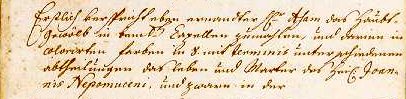 Erstlich verspricht eben ernandter Hr Asam das Haubt
gwölb in bemlt Capellen zumahlen, und darinn in
colorirten farben in 8. mit terminis unterschidenen
abtheilungen das leben und Marter des Heyl. Joan-
nis Nepomuceni, und zwarn in der